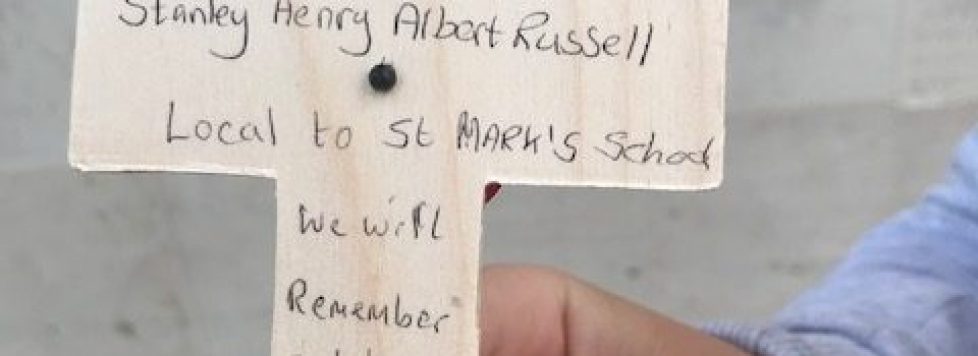 Stanley Henry Albert Russell
Local to St MARK'S School
We will
Remember